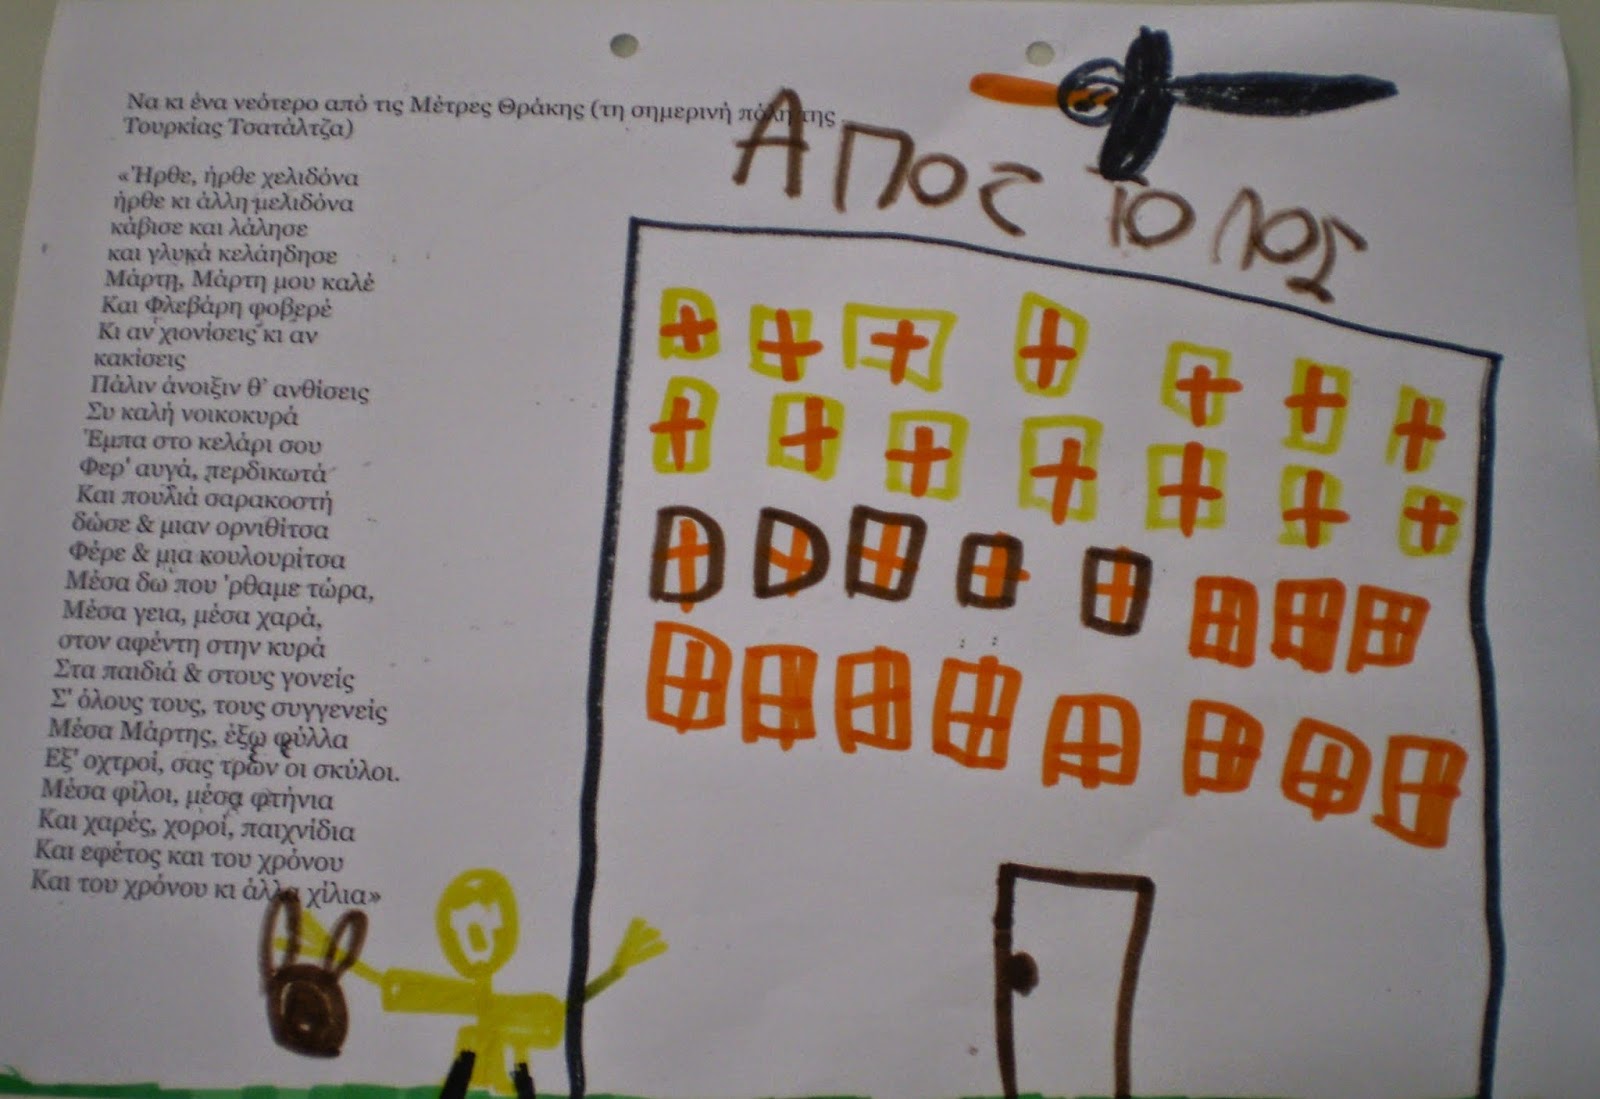 Να κι ένα νεότερο από τις Μέτρες Θράκης (τη σημερινή πόλη της
Τουρκίας Τσατάλτζα)
«Ήρθε, ήρθε χελιδόνα
ήρθε κι άλλη μελιδόνα
κάβισε και λάλησε
και γλυκά κελάηδησε
Μάρτη, Μάρτη μου καλέ
Και Φλεβάρη φοβερέ
Κι αν χιονίσεις κι αν
κακίσεις
Πάλιν άνοιξιν θ' ανθίσεις
Συ καλή νοικοκυρά
Έμπα στο κελάρι σου
Φερ' αυγά, περδικωτά
Και πουλιά σαρακοστή
δώσε & μιαν ορνιθίτσα
Φέρε & μια κουλουρίτσα
Μέσα δω που 'ρθαμε τώρα,
Μέσα γεια, μέσα χαρά,
στον αφέντη στην κυρά
Στα παιδιά & στους γονείς
Σ' όλους τους, τους συγγενείς
Μέσα Μάρτης, έξω ψύλλα
Εξ' οχτροί, σας τρων οι σκύλοι.
Μέσα φίλοι, μέσα φτήνια
Και χαρές, χοροί, παιχνίδια
Και εφέτος και του χρόνου
Και του χρόνου κι άλλα χίλια»
ΑΠΟΣΤΟΛΟΣ